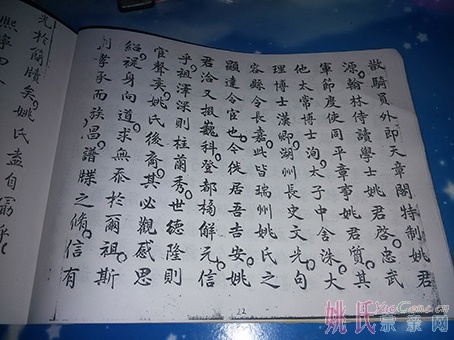 散騎員外即天章閣特制姚君
源翰林侍讀學士姚君啓忠武
軍節度使同平章事姚君質其
他太常博士洵太子中舍洙大
理博士漢卿湖州長史文光句
容縣令長嘉此皆瑞州姚氏之
顯達令官也今徙居吾吉安姚
君洽又掇巍科登都橘解元信
乎祖澤深則柱蘭秀世德隆則
官聲奕姚氏後裔其必觀感思
紹禔身向道求無忝於爾祖斯
孝承而族昌譜牒之脩信有
光於簡牘矣姚氏盍自勗乎
熙寧四
22
姚氏宗亲网